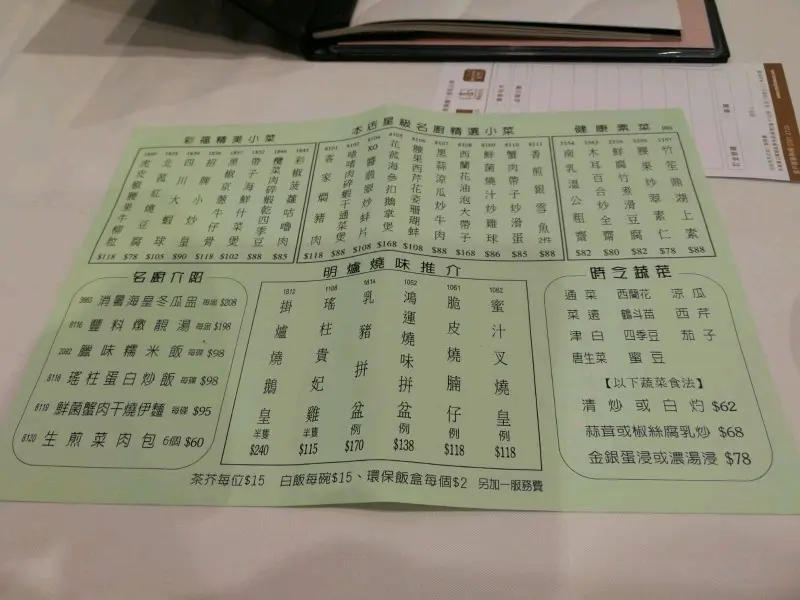 彩福精美小菜
虎皮椒腰果牛柳粒 $118
北菇紅燒豆腐 $78
四川大蝦球 $105
招牌小炒皇 $98
黑椒京蔥牛仔骨 $118
帶子海鮮什菜煲 $102
欖菜肉碎蝦乾四季豆 $88
彩椒菠蘿咕嚕肉 $85
本店星級名廚精選小菜
8101 客家燜豬肉 $118
啫啫肉碎蝦干通菜煲 $88
XO醬翡翠炒蚌片 $108
8105 花菰海參扣鵝掌煲 $168
糖果西芹花姿珊瑚蚌 $108
黑蒜涼瓜炒牛肉 $88
西蘭花油泡大帶子 $168
鮮菌燒汁炒雞球 $86
蟹肉帶子炒滑蛋 $85
8211 香煎銀雪魚 2件 $88
健康素菜
南乳溫公粗齋 $82
木耳百合炒全齋 $80
鮮腐竹煮滑豆腐 $82
腰果炒翠素仁 $78
竹笙鼎湖上素 $88
名廚介紹
消暑海星冬瓜盅 每盅 $208
8116 豐料燉靚湯 每盅 $198
2082 臘味糯米飯 每碟 $98
8118 瑤柱蛋白炒飯 每碟 $98
8119 鮮菌蟹肉干燒伊麵 每碟 $95
8120 生煎菜肉包 6個 $60
明爐燒味推介
1812 掛爐燒鵝皇 半隻 $240
1108 瑤柱貴妃雞 半隻 $115
1814 乳豬拼盆 例 $170
1052 鴻運燒味拼盆 例 $138
1061 脆皮燒腩仔 例 $118
1062 蜜汁叉燒皇 例 $118
時令蔬菜
通菜 西蘭花 涼瓜
菜遠 鶴斗苗 西芹
津白 四季豆 茄子
唐生菜 蜜豆
【以下蔬菜食法】
清炒或白灼 $62
蒜茸或椒絲腐乳炒 $68
金銀蛋浸或濃湯浸 $78
茶芥每位$15 白飯每碗$15、環保飯盒每個$2 另加一服務費